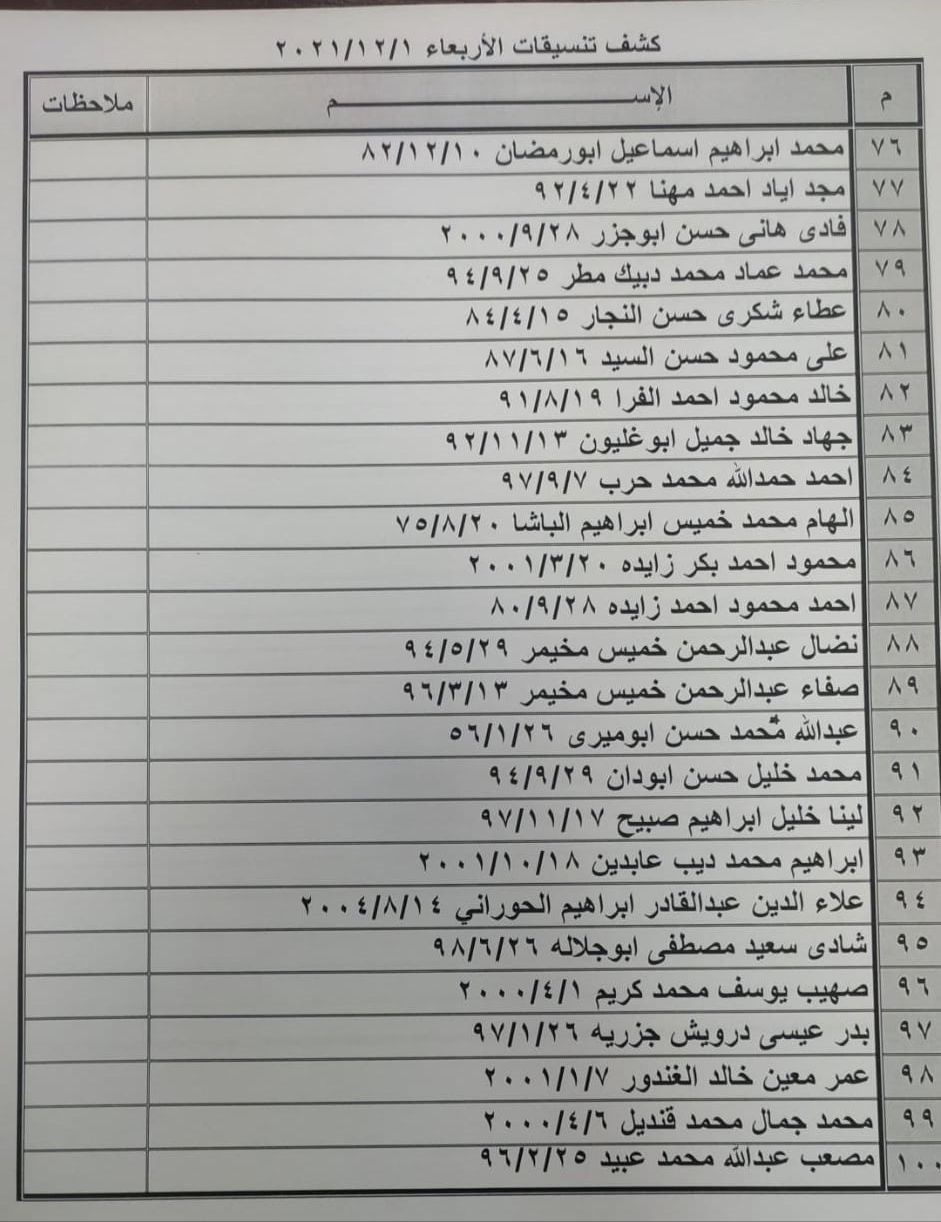 كشف تنسيقات الأربعاء ٢٠٢١/١٢/١
م الإســـــــــــــم ملاحظات
٧٦ محمد ابراهيم اسماعيل ابورمضان ٨٢/١٢/١٠
٧٧ مجد اياد احمد مهنا ٩٢/٤/٢٢
٧٨ فادى هانى حسن ابوجزر ٢٠٠٠/٩/٢٨
٧٩ محمد عماد محمد دبيك مطر ٩٤/٩/٢٥
٨٠ عطاء شكرى حسن النجار ٨٤/٤/١٥
٨١ على محمود حسن السيد ٨٧/٦/١٦
٨٢ خالد محمود احمد الفرا ٩١/٨/١٩
٨٣ جهاد خالد جميل ابوغليون ٩٢/١١/١٣
٨٤ احمد حمدالله محمد حرب ٩٧/٩/٧
٨٥ الهام محمد خميس ابراهيم الباشا ٧٥/٨/٢٠
٨٦ محمود احمد بكر زايده ٢٠٠١/٣/٢٠
٨٧ احمد محمود احمد زايده ٨٠/٩/٢٨
٨٨ نضال عبدالرحمن خميس مخيمر ٩٤/٥/٢٩
٨٩ صفاء عبدالرحمن خميس مخيمر ٩٦/٣/١٣
٩٠ عبدالله محمد حسن ابوميرى ٥٦/١/٢٦
٩١ محمد خليل حسن ابودان ٩٤/٩/٢٩
٩٢ لينا خليل ابراهيم صبيح ٩٧/١١/١٧
٩٣ ابراهيم محمد ديب عابدين ٢٠٠١/١٠/١٨
٩٤ علاء الدين عبدالقادر ابراهيم الحوراني ٢٠٠٤/٨/١٤
٩٥ شادى سعيد مصطفى ابوجلاله ٩٨/٦/٢٦
٩٦ صهيب يوسف محمد كريم ٢٠٠٠/٤/١
٩٧ بدر عيسى درويش جزريه ٩٧/١/٢٦
٩٨ عمر معين خالد الغندور ٢٠٠١/١/٧
٩٩ محمد جمال محمد قنديل ٢٠٠٠/٤/٦
١٠٠ مصعب عبدالله محمد عبيد ٩٦/٢/٢٥